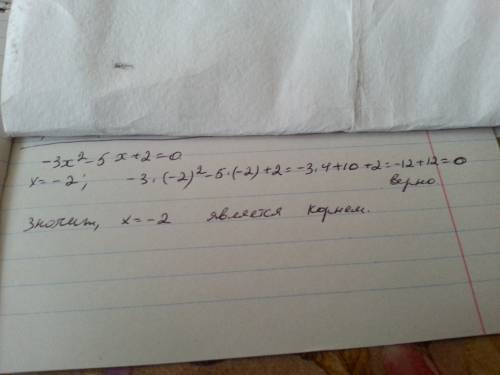 -3x²-5x+2=0
x=-2; -3·(-2)²-5·(-2)+2=-3·4+10+2=-12+12=0
верно
значит, x=-2 является корнем.